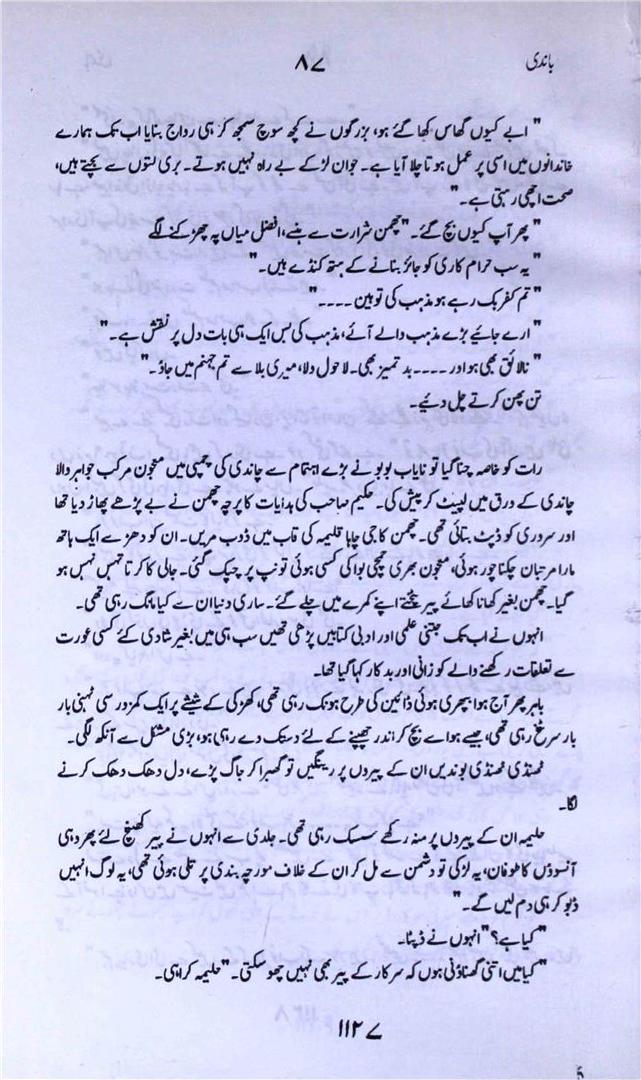 باندی
۸۷
" ابے کیوں گھاس کھا گئے ہو، بزرگوں نے کچھ سوچ سمجھ کر ہی رواج بنایا اب تک ہمارے
خاندانوں میں اسی پر عمل ہوتا چلا آیا ہے۔ جوان لڑکے بے راہ نہیں ہوتے۔ بری لتوں سے بچتے ہیں،
صحت اچھی رہتی ہے۔"
" پھر آپ کیوں بچ گئے۔" چھمن شرارت سے ہنسے، افضل میاں پہ چھڑکنے لگے
" یہ سب حرام کاری کو جائز بنانے کے ہتھ کنڈے ہیں۔"
" تم کفر بک رہے ہو مذہب کی توہین ۔۔۔۔"
" ارے جائیے بڑے مذہب والے آئے، مذہب کی بس ایک ہی بات دل پر نقش ہے۔"
" نالائق بھی ہو اور ۔۔۔۔ بد تمیز بھی۔ لا حول ولا، میری بلا سے تم جہنم میں جاؤ۔"
تن پھن کرتے چل دیئے۔
رات کو خاصہ چنا گیا تو نایاب بوبو نے بڑے اہتمام سے چاندی کی پلیٹی میں معجون مرکب جواہر والا
چاندی کے ورق میں لپیٹ کر پیش کی۔ حکیم صاحب کی ہدایات کا پرچہ چھمن نے بے پڑھے پھاڑ دیا تھا
اور سروری کو ڈپٹ بتائی تھی۔ چھمن کا جی چاہا قلیہ کی قاب میں ڈوب مریں۔ ان کو دھڑ سے ایک ہاتھ
مارا مرتبان چکنا چور ہوئی، معجون بھری چمچی بوا کی کسی ہوئی توئپ پر چپک گئی۔ جالی کا کرتا تہس نہس ہو
گیا۔ چھمن بغیر کھانا کھائے پیر پٹختے اپنے کمرے میں چلے گئے۔ ساری دنیا ان سے کیا مانگ رہی تھی۔
انہوں نے اب تک جتنی علمی اور ادبی کتابیں پڑھی تھیں سب ہی میں بغیر شادی کئے کسی عورت
سے تعلقات رکھنے والے کو زانی اور بد کار کہا گیا تھا۔
باہر پھر آج ہوا بپھری ہوئی ڈائین کی طرح ہونک رہی تھی، کھڑکی کے شیشے پر ایک کمزور سی ٹہنی بار
بار سر پٹخ رہی تھی، جیسے ہوا سے بچ کر اندر چھپنے کے لئے دستک دے رہی ہو، بڑی مشکل سے آنکھ لگی۔
ٹھنڈی ٹھنڈی بوندیں ان کے پیروں پر رینگیں تو گھبرا کر جاگ پڑے، دل دھک دھک کرنے
لگا۔
حلیمہ ان کے پیروں پر منہ رکھے سسک رہی تھی۔ جلدی سے انہوں نے پیر کھینچ لئے پھر وہی
آنسوؤں کا طوفان، یہ لڑکی تو دشمن سے مل کر ان کے خلاف مورچہ بندی پر تلی ہوئی تھی، یہ لوگ انہیں
ڈبو کر ہی دم لیں گے۔"
" کیا ہے؟" انہوں نے ڈپٹا۔
" کیا میں اتنی گھناؤنی ہوں کہ سرکار کے پیر بھی نہیں چھو سکتی۔" حلیمہ کراہی۔
۱۱۲۷